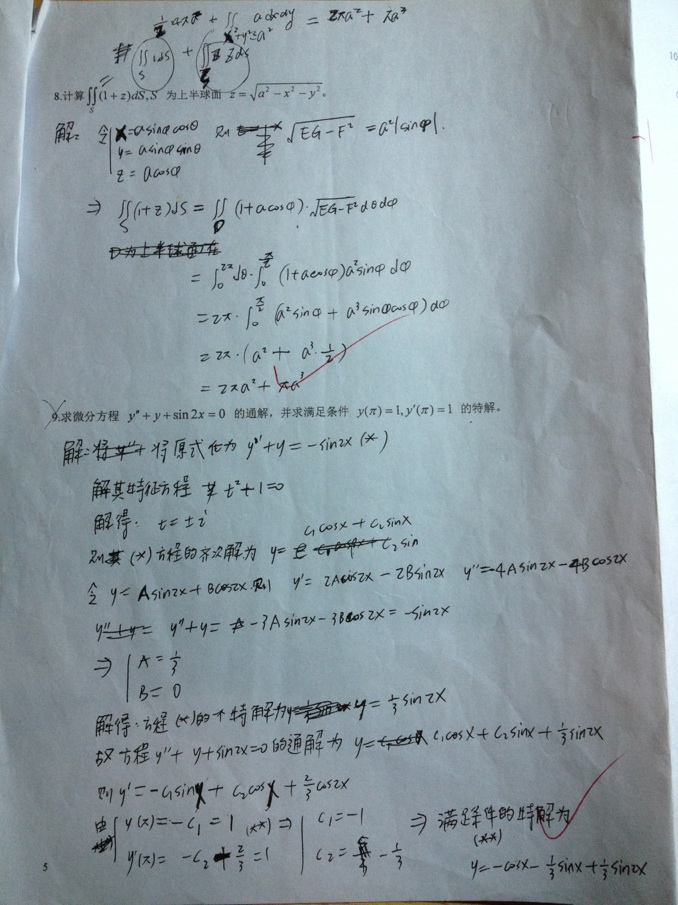 ½·4πa² + ∬_{x²+y²≤a²} a dxdy = 2πa² + πa³
∬_S 1dS + ∬_S z dS
=
8.计算∬_S (1+z)dS, S 为上半球面 z=√(a²-x²-y²)。
解: 令 { x=asinφcosθ 则 √(EG-F²) = a²|sinφ|.
y=asinφsinθ
z=acosφ
⇒ ∬_S (1+z)dS = ∬_D (1+acosφ)·√(EG-F²) dθdφ
= ∫₀^{2π} dθ·∫₀^{π/2} (1+acosφ)a²sinφ dφ
= 2π·∫₀^{π/2} (a²sinφ + a³sinφcosφ)dφ
= 2π·(a² + a³·½)
= 2πa² + πa³
9.求微分方程 y″+y+sin2x=0 的通解，并求满足条件 y(π)=1, y′(π)=1 的特解。
解: 将原式化为 y″+y=-sin2x (*)
解其特征方程 t²+1=0
解得: t=±i
则 (*) 方程的齐次解为 y= c₁cosx + c₂sinx
令 y=Asin2x+Bcos2x.则 y′=2Acos2x-2Bsin2x y″=-4Asin2x-4Bcos2x
y″+y= -3Asin2x-3Bcos2x=-sin2x
⇒ { A=⅓
B=0
解得:方程(*)的个特解为 y=⅓sin2x
故方程 y″+y+sin2x=0的通解为 y= c₁cosx+c₂sinx+⅓sin2x
则 y′=-c₁sinx+c₂cosx+⅔cos2x
由 { y(π)=-c₁=1 (**) ⇒ { c₁=-1 ⇒ 满足条件的特解为
(**)
y′(π)= -c₂+⅔=1 c₂= -⅓ y=-cosx-⅓sinx+⅓sin2x
5